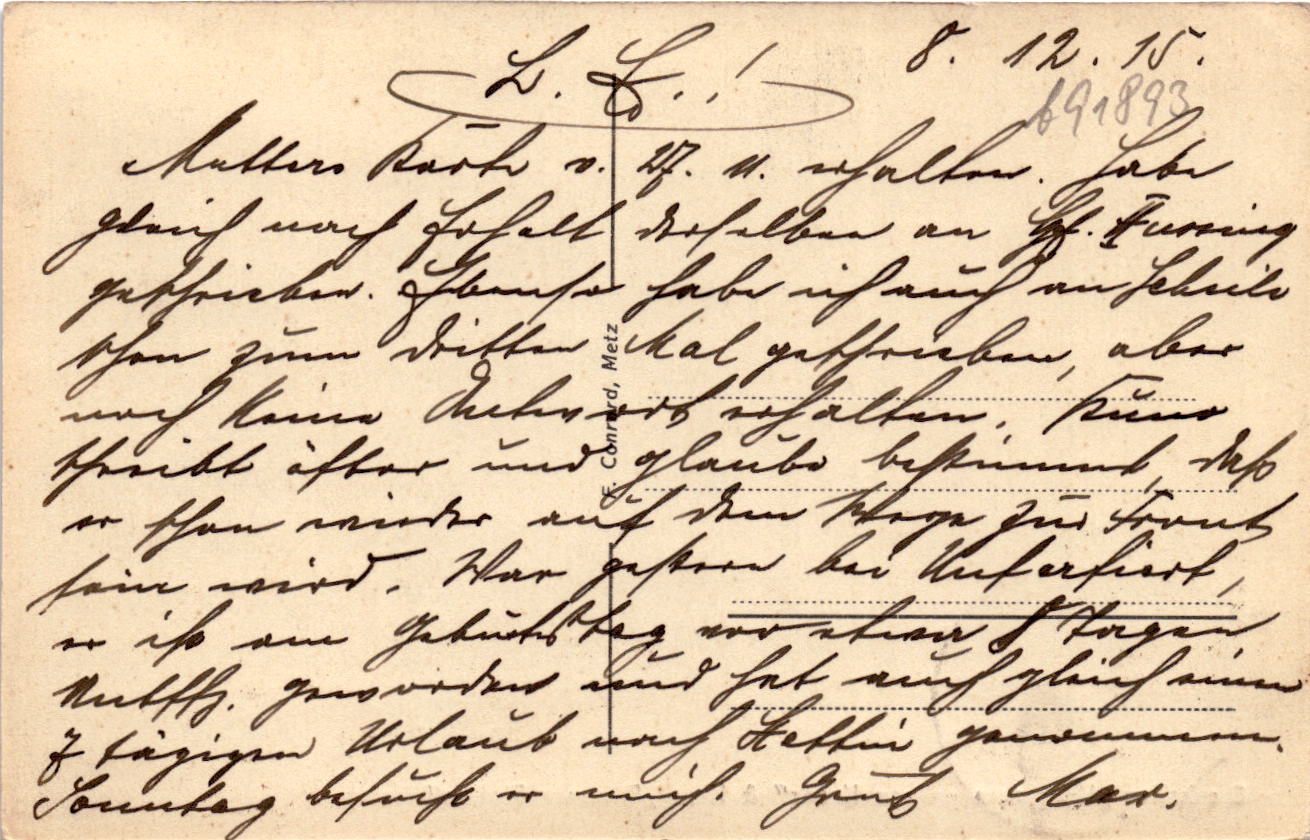 L. L.!
8. 12. 15.
691893
Mutters Karte v. 27. 11. erhalten. Habe
gleich nach Erhalt derselben an
geschrieben. Ebenso habe ich auch an
schon zum dritten Mal geschrieben, aber
noch keine Antwort erhalten. Kuno
schreibt öfter und glaube bestimmt, daß
er schon wieder auf dem Wege zur Front
sein wird. War gestern bei
er ist am Geburtstag vor etwa 8 Tagen
Utffz. geworden und hat auch gleich einen
7 tägigen Urlaub nach Stettin genommen.
Sonntag besucht er mich. Gruß Max.
F. Conrard, Metz